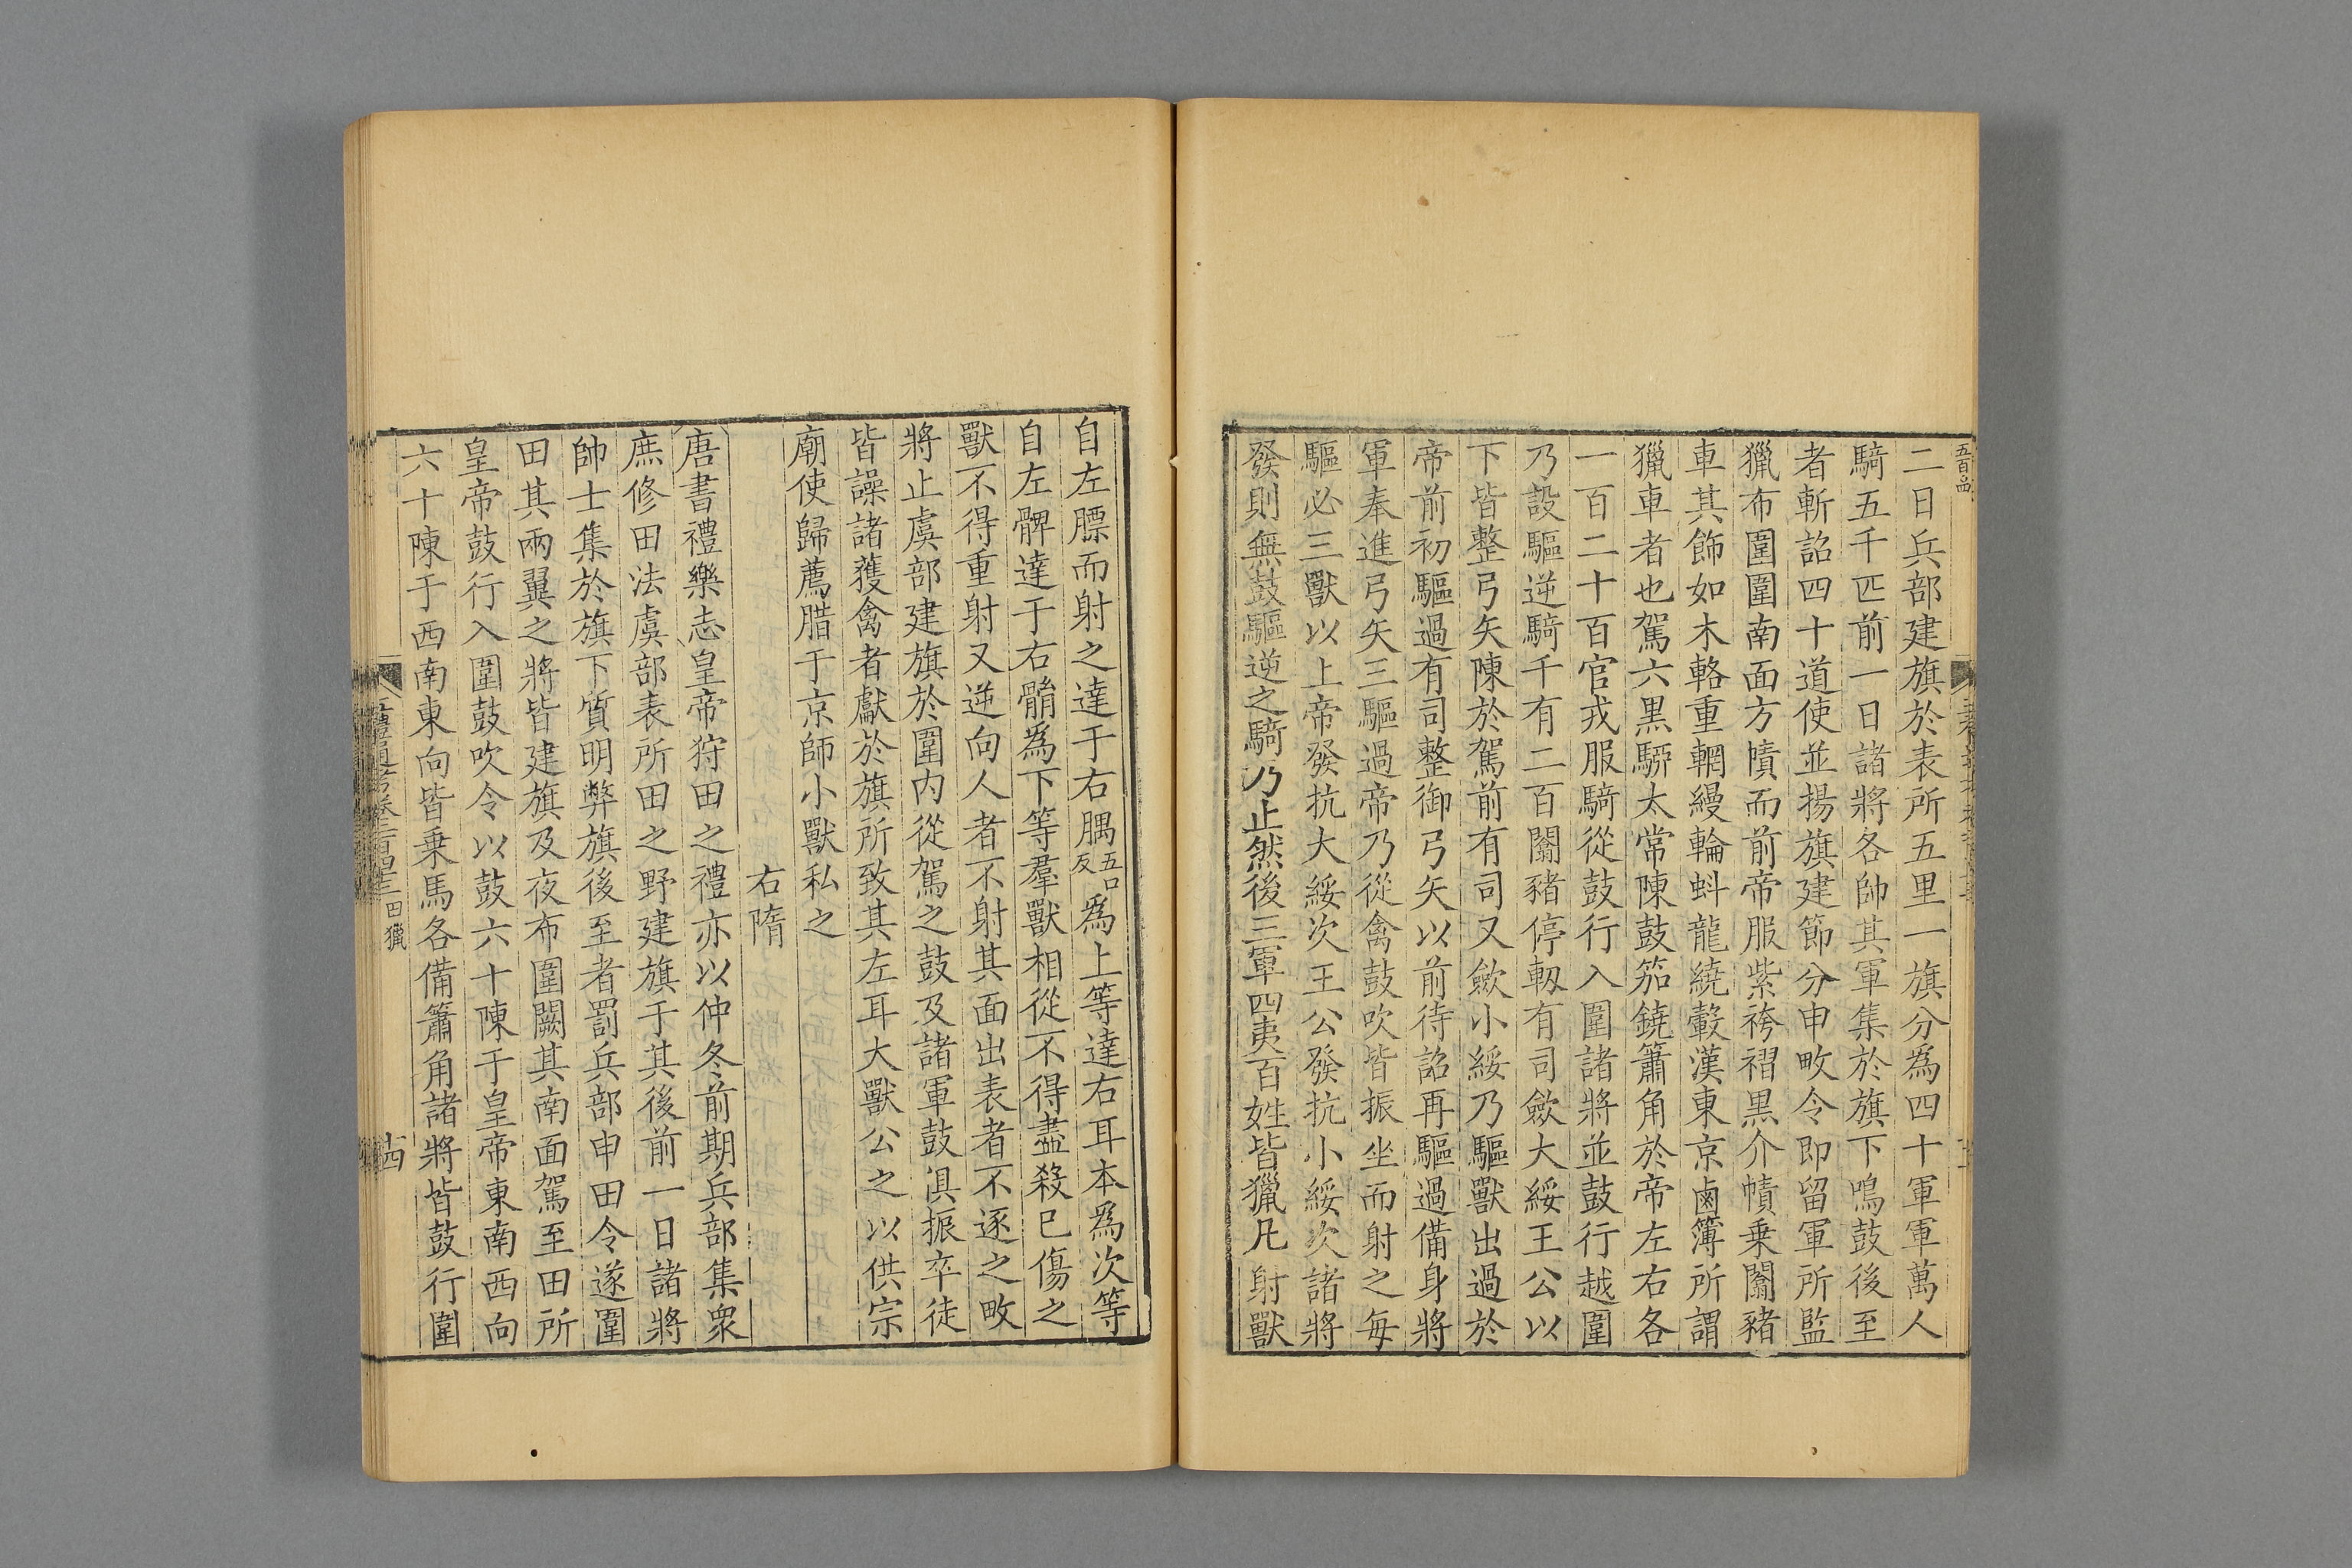 二日兵部建旗於表所五里一旗分爲四十軍軍萬人
騎五千匹前一日諸將各帥其軍集於旗下鳴鼓後至
者斬詔四十道使並揚旗建節分申畋令即留軍所監
獵布圍圍南面方幩而前帝服紫袴褶黑介幘乗闟豬
車其飾如木輅重輞縵輪蚪龍繞轂漢東京鹵簿所謂
獵車者也駕六黑駵太常陳鼓笳鐃簫角於帝左右各
一百二十百官戎服騎從鼓行入圍諸將並鼓行越圍
乃設驅逆騎千有二百闟豬停軔有司歛大綏王公以
下皆整弓矢陳於駕前有司又歛小綏乃驅獸出過於
帝前初驅過有司整御弓矢以前待詔再驅過備身將
軍奉進弓矢三驅過帝乃從禽鼓吹皆振坐而射之每
驅必三獸以上帝發抗大綏次王公發抗小綏次諸將
發則無鼓驅逆之騎乃止然後三軍四夷百姓皆獵凡射獸
自左膘而射之達于右腢五口反爲上等達右耳本爲次等
自左髀達于右䯚爲下等羣獸相從不得盡殺已傷之
獸不得重射又逆向人者不射其面出表者不逐之畋
將止虞部建旗於圍内從駕之鼓及諸軍鼓俱振卒徒
皆譟諸獲禽者獻於旗所致其左耳大獸公之以供宗
廟使歸薦腊于京師小獸私之
右隋
唐書禮樂志皇帝狩田之禮亦以仲冬前期兵部集衆
庶修田法虞部表所田之野建旗于其後前一日諸將
帥士集於旗下質明弊旗後至者罰兵部申田令遂圍
田其兩翼之將皆建旗及夜布圍闕其南面駕至田所
皇帝鼓行入圍鼓吹令以鼓六十陳于皇帝東南西向
六十陳于西南東向皆乗馬各備簫角諸將皆鼓行圍
田獵